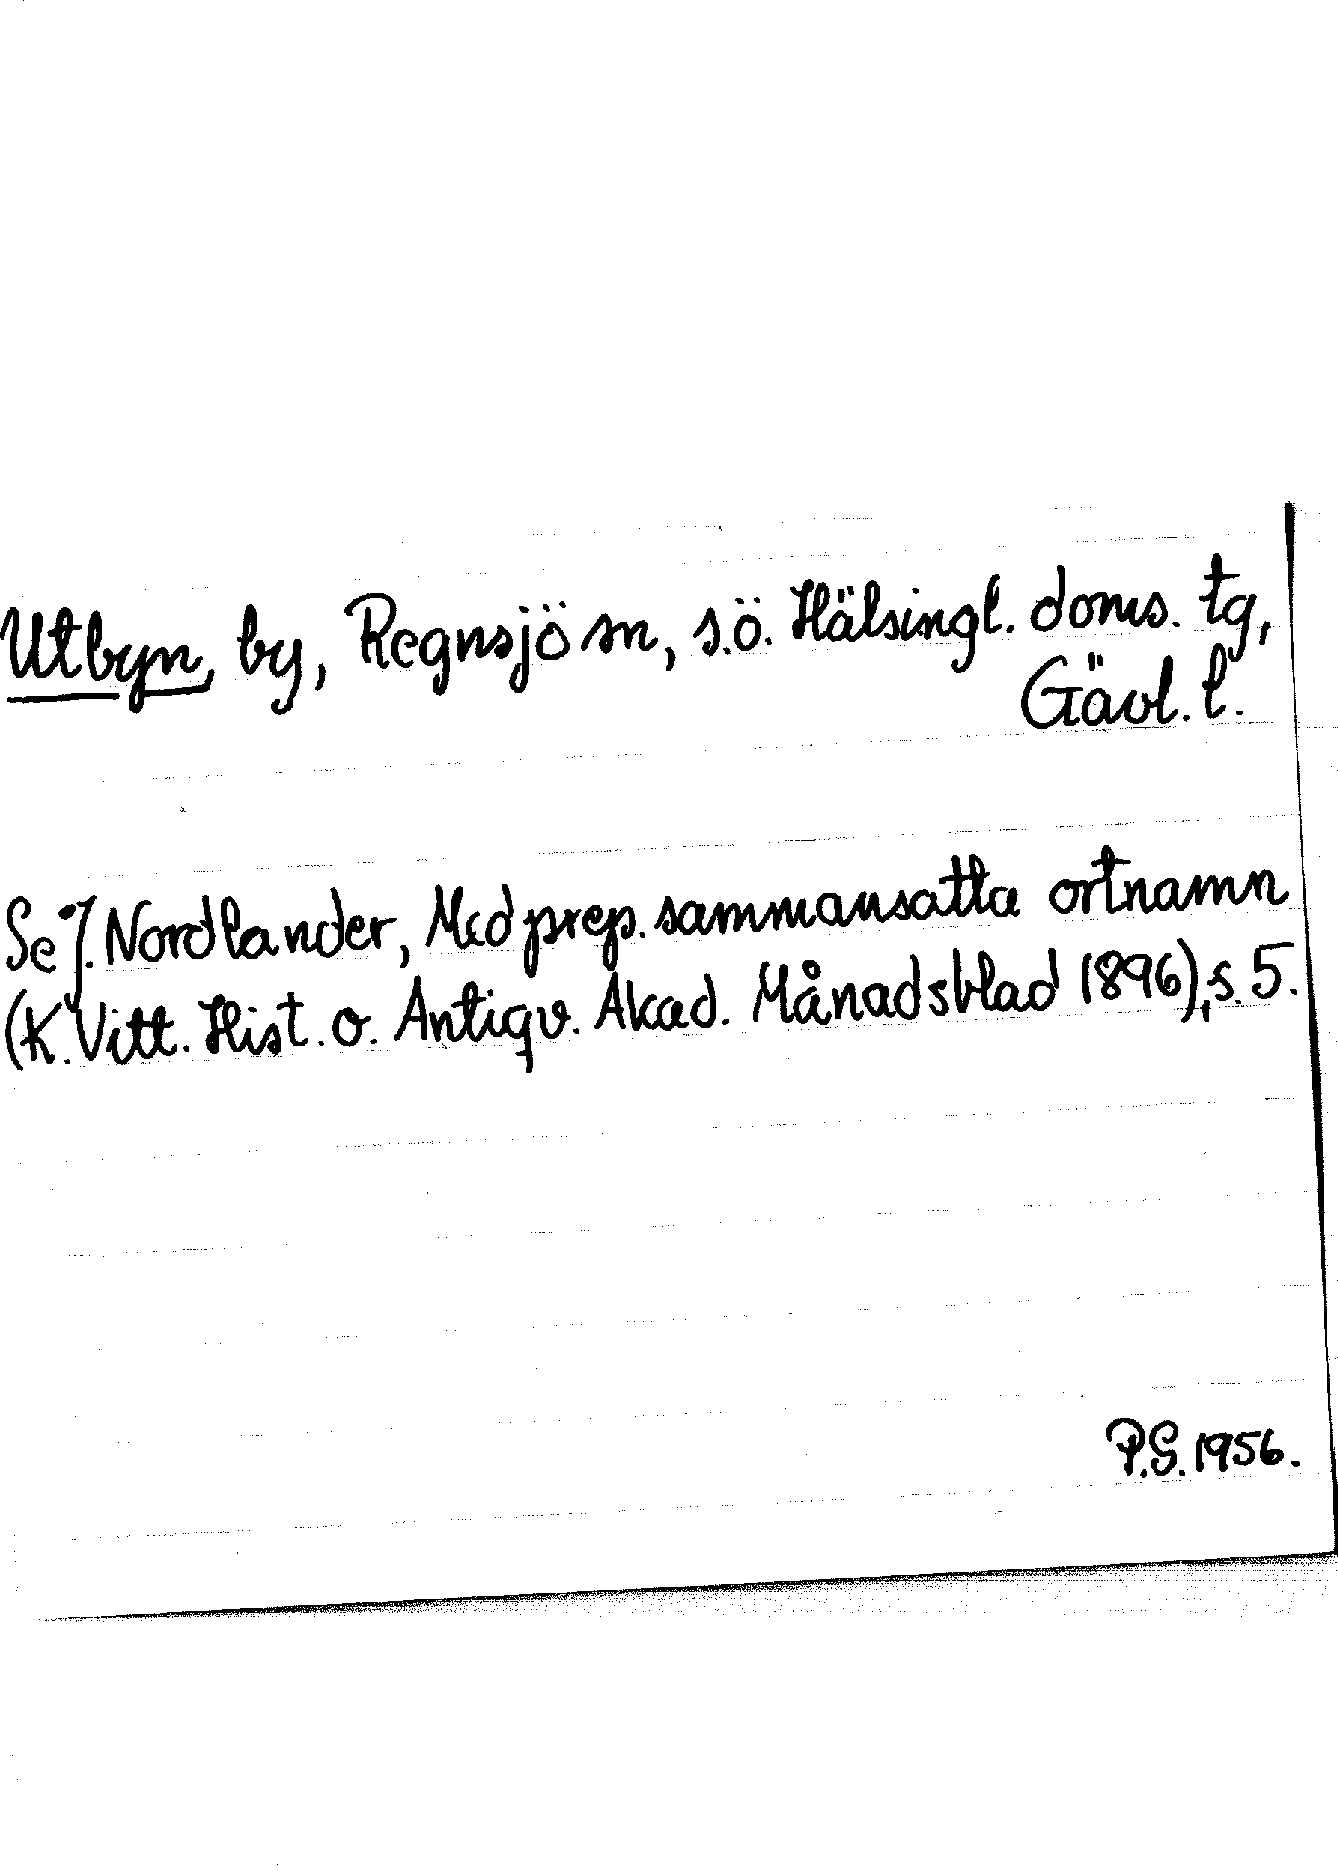 Utbyn, by, Regnsjö sn, s.ö. Hälsingl. doms. tg,
Gävl. l.
Se J. Nordlander, Med prep. sammansatta ortnamn
(K. Vitt. Hist. o. Antiqv. Akad. Månadsblad 1896), s. 5.
P.G. 1956.